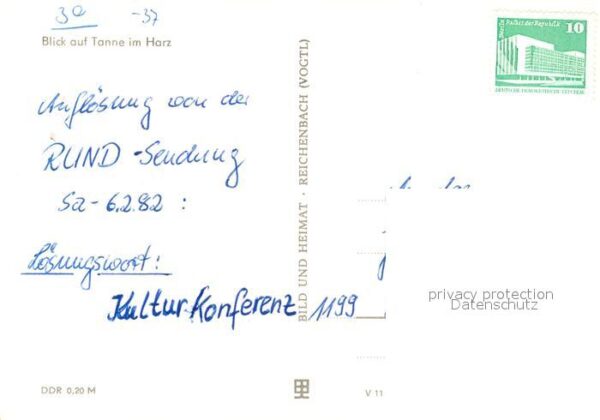 30 -37
Blick auf Tanne im Harz
Auflösung von der
RUND-Sendung
Sa- 6.2.82 :
Lösungswort:
Kultur Konferenz 1199
DDR 0,20 M
BILD UND HEIMAT · REICHENBACH (VOGTL)
V 11
Berlin Palast der Republik
10
DEUTSCHE DEMOKRATISCHE REPUBLIK
privacy protection
Datenschutz